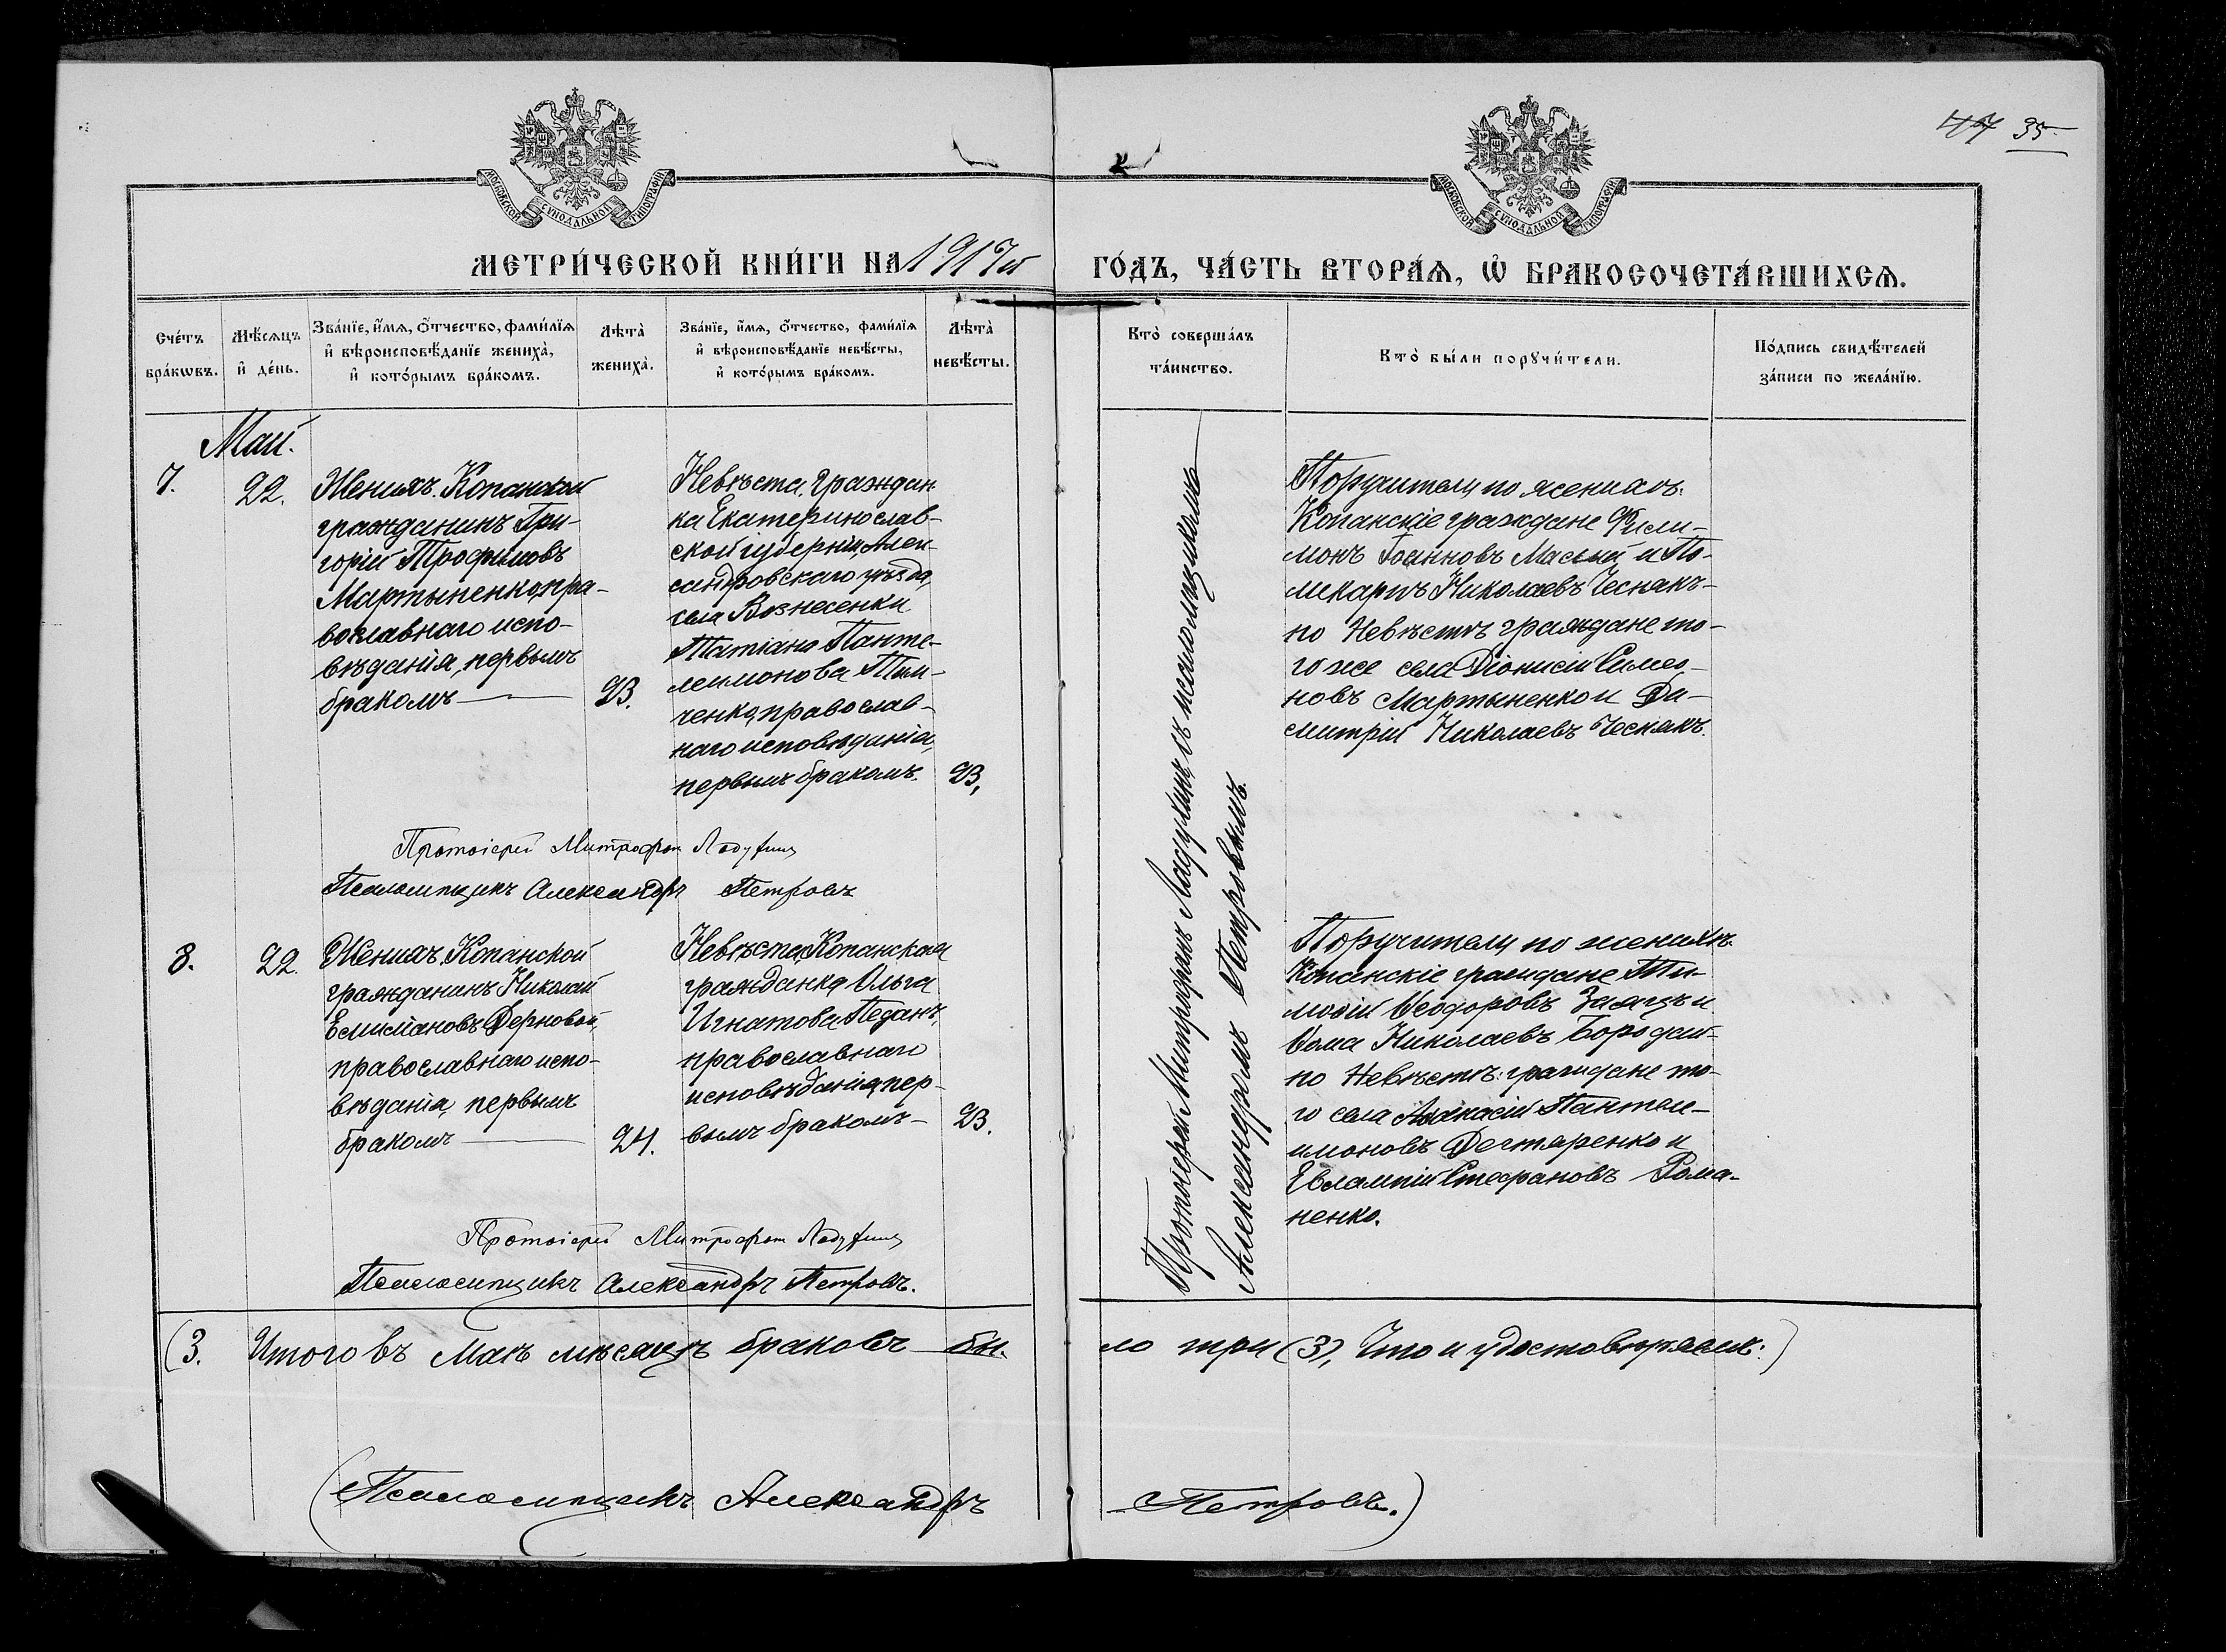 47 35
МОСКОВСКОЙ СѴНОДАЛЬНОЙ ТИПОГРАФІИ
МОСКОВСКОЙ СѴНОДАЛЬНОЙ ТИПОГРАФІИ
МЕТРИ́ЧЕСКОЙ КНИ́ГИ НА 1917й ГО́ДЪ, ЧА́СТЬ ВТОРА́Ѧ, Ѽ БРАКОСОЧЕТА́ВШИХСѦ.
Сче́тъ
бра́кѡвъ.
Мѣ́сѧцъ
и҆ де́нь.
Зва́нїе, и҆́мѧ, ѻ҆́тчество, фами́лїѧ
и҆ вѣроисповѣ́данїе жениха̀,
и҆ кото́рымъ бра́комъ.
Лѣта̀
жениха̀.
Зва́нїе, и҆́мѧ, ѻ҆́тчество, фами́лїѧ
и҆ вѣроисповѣ́данїе невѣ́сты,
и҆ кото́рымъ бра́комъ.
Лѣта̀
невѣ́сты.
Кто̀ соверша́лъ
та́инство.
Кто̀ бы́ли порꙋчи́тели.
По́дпись свидѣ́телей
за́писи по жела́нїю.
Май.
7.
22.
Женихъ. Копанской
гражданинъ Гри-
горій Трофимовъ
Мартыненко, пра-
вославнаго испо-
вѣданія, первымъ
бракомъ —
23.
Невѣста, граждан
ка Екатеринослав-
ской губерніи, Алек-
сандровскаго уѣзда,
села Вознесенки
Татіана Панте-
леимонова Тим-
ченко, православ-
наго исповѣданія,
первымъ бракомъ.
23,
Протоіерей Митрофанъ Ладухинъ съ псаломщикомъ
Александромъ Петровымъ.
Поручители по женихѣ:
Копанскіе граждане Фили-
монъ Іоанновъ Малый и По-
ликарпъ Николаевъ Чеснакъ-
по Невѣстѣ граждане то-
го же села Діонисій Симео-
новъ Мартыненко и Ди-
митрій Николаевъ Чеснакъ.
Протоіерей Митрофанъ Ладухинъ
Псаломщикъ Александръ Петровъ
8.
22.
Женихъ. Копанской
гражданинъ Николай
Емиліановъ Дерновой,
православнаго испо-
вѣданія, первымъ
бракомъ —
24.
Невѣста, Копанская
гражданка Ольга
Игнатова Педанъ,
православнаго
исповѣданія, пер-
вымъ бракомъ-
23.
Поручители по женихѣ:
Копанскіе граждане Ти-
моѳій Ѳеодоровъ Заяцъ и
Ѳома Николаевъ Бородай-
по Невѣстѣ: граждане то-
го села Акакій Пантеле-
имоновъ Дегтяренко и
Евлампій Стефановъ Рома-
ненко.
Протоіерей Митрофанъ Ладухинъ
Псаломщикъ Александръ Петровъ.
(3. Итого въ Маѣ мѣсяцѣ браковъ бы-
ло три (3), Что и удостовѣряемъ:)
(Псаломщикъ Александръ Петровъ.)